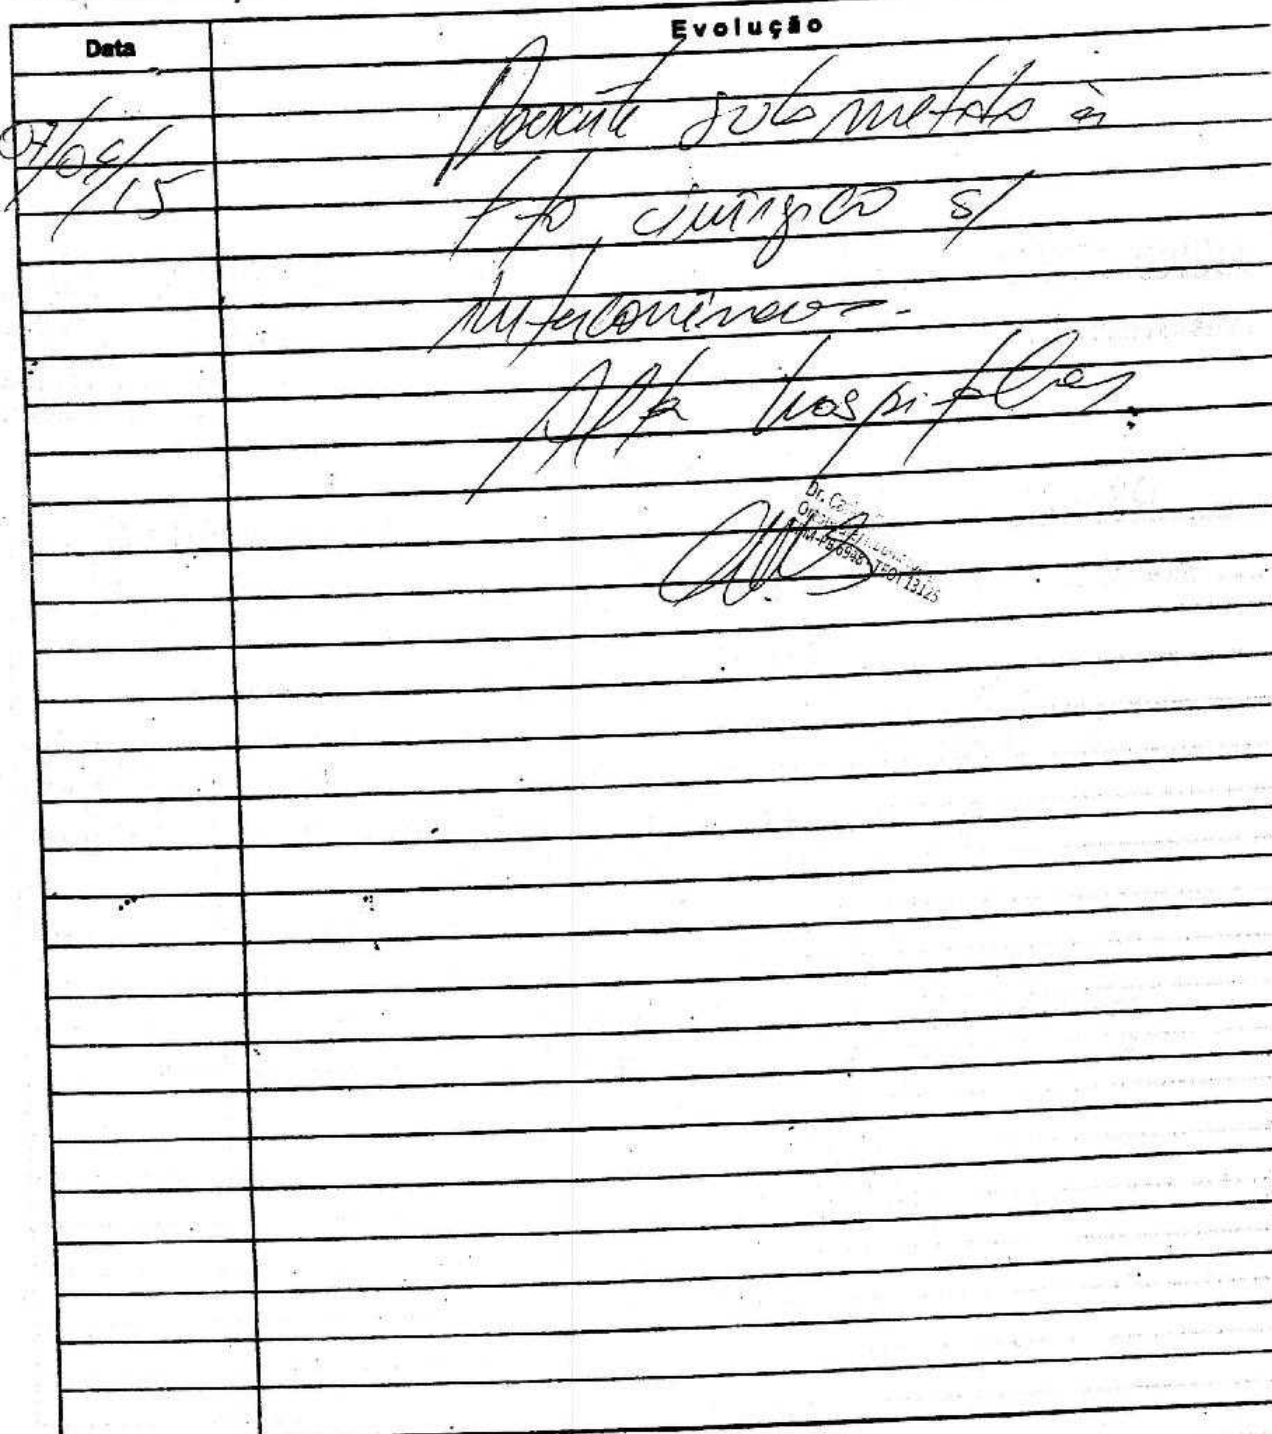 Data
Evolução
07/04/15
Paciente submetido à
tto cirúrgico s/
intercorrências.
Alta hospitalar
Dr. Ca
PB 6948 - TEOT 13125